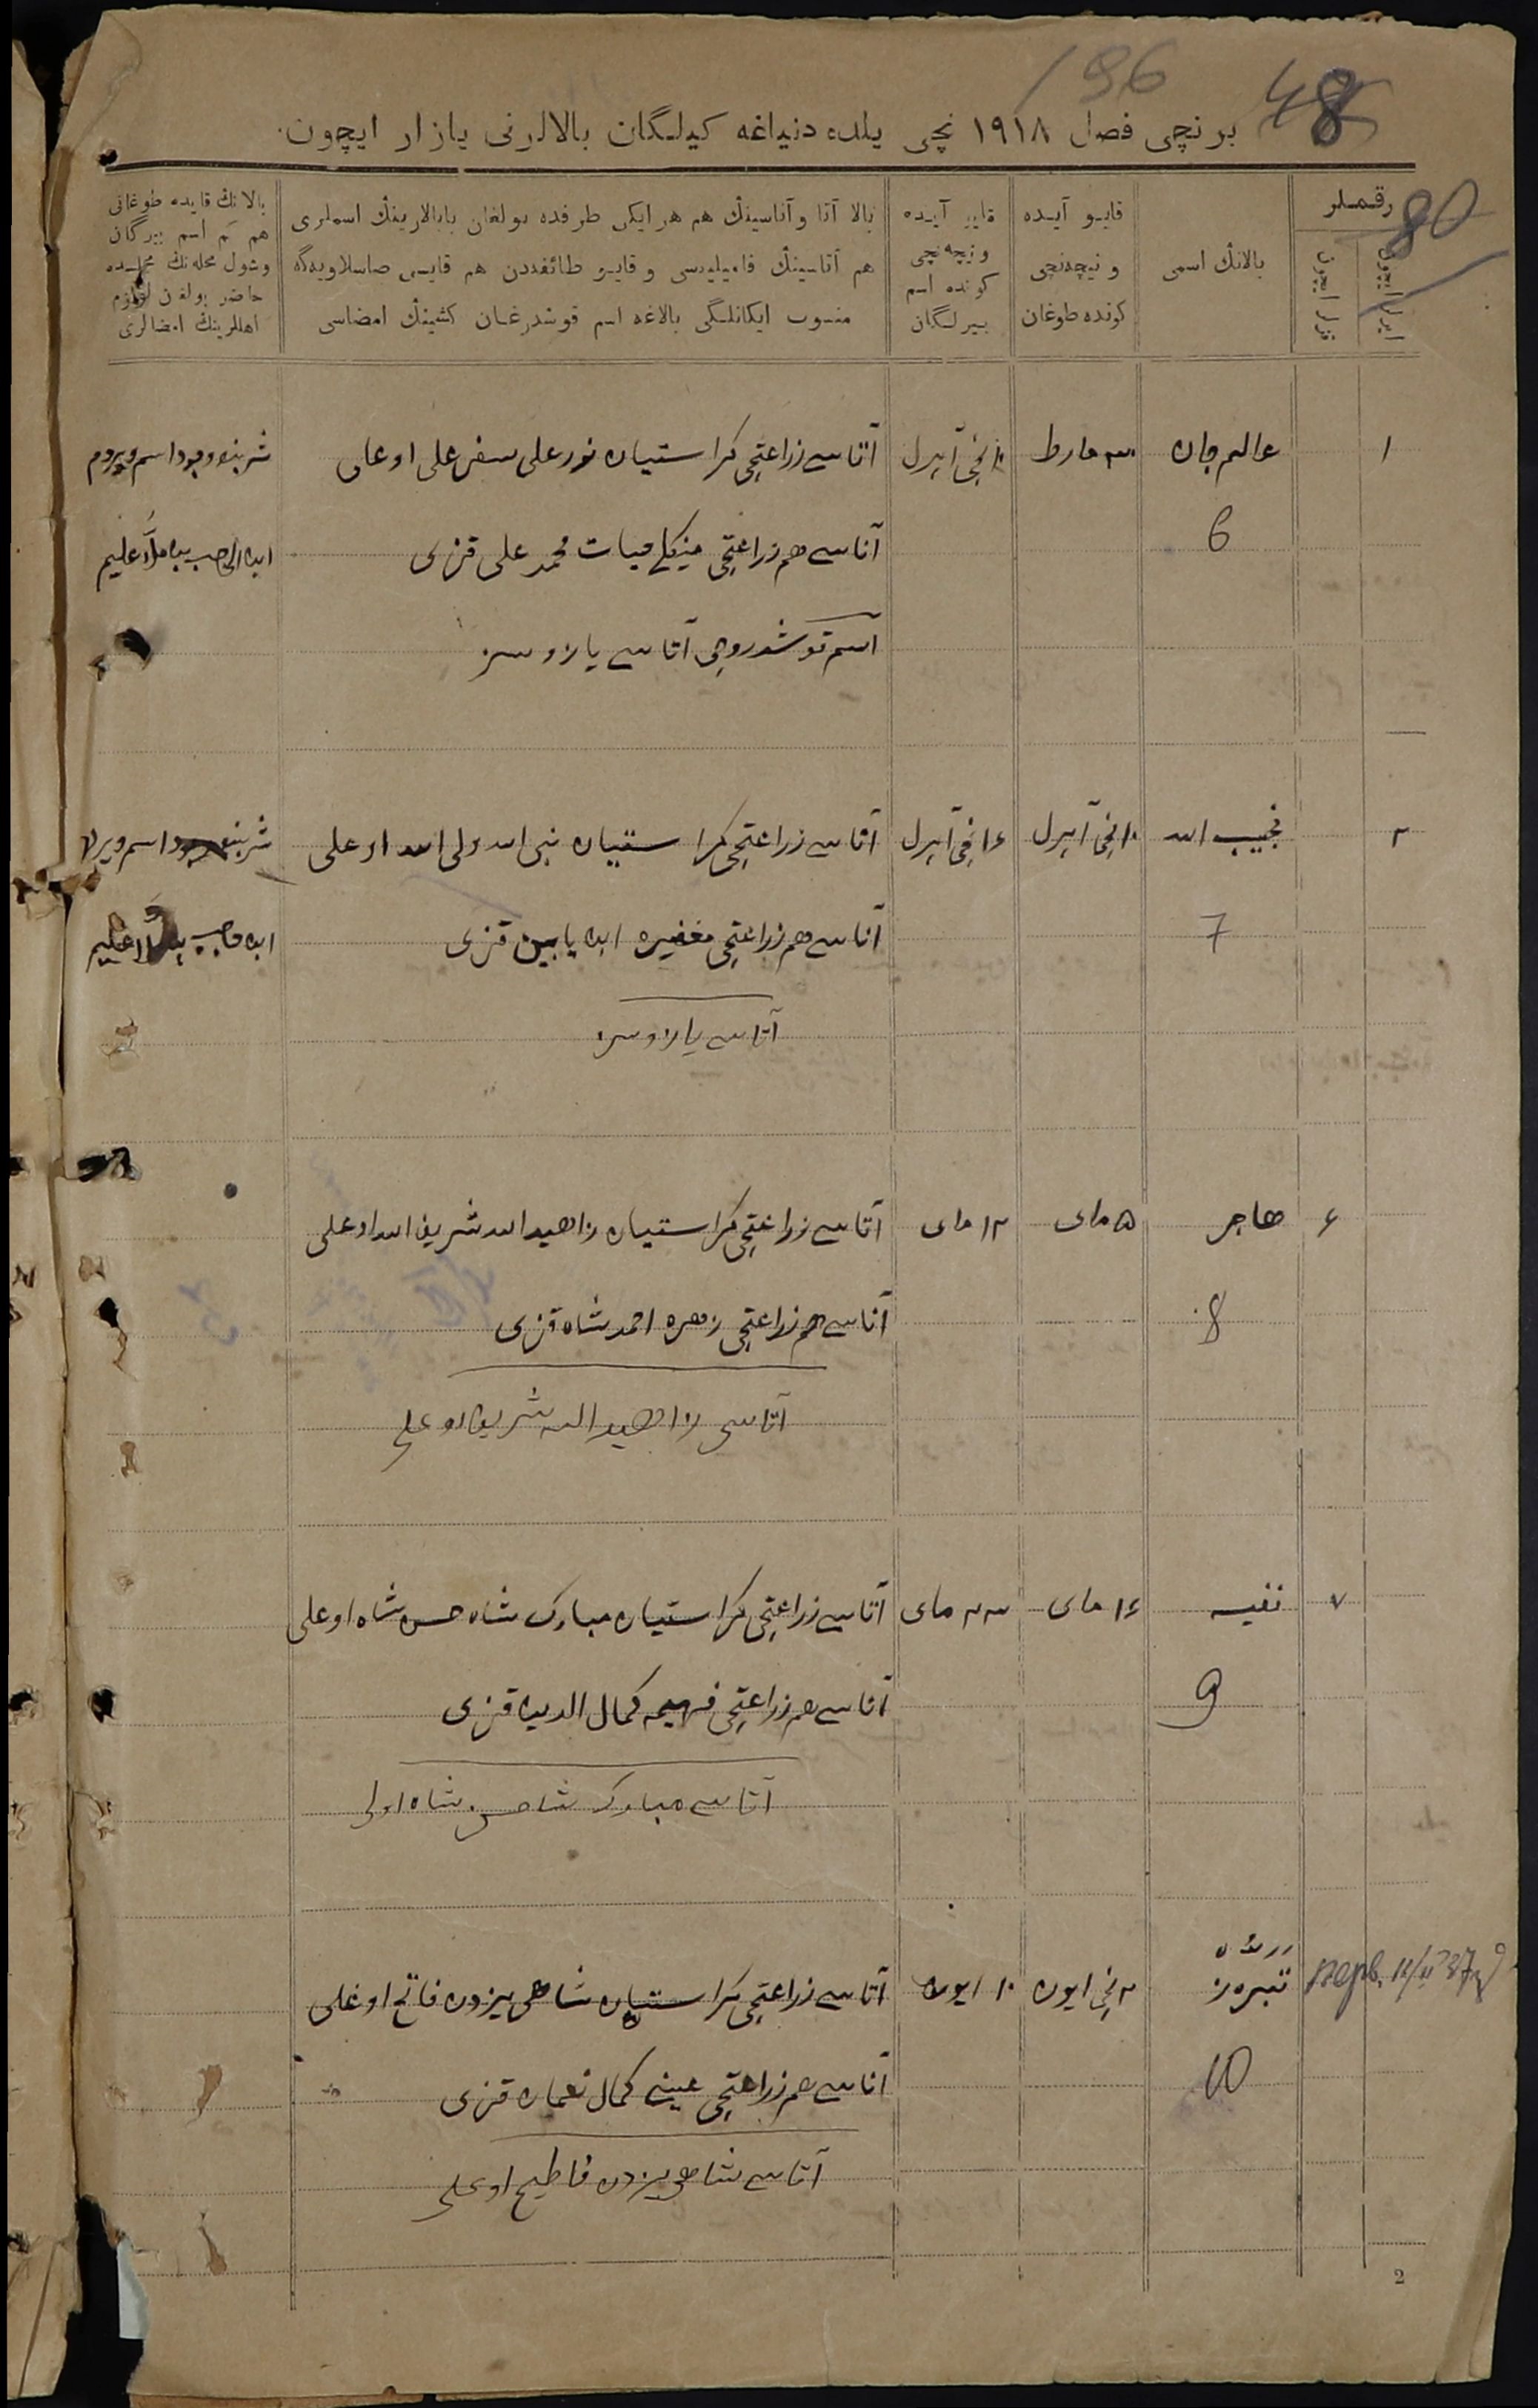 196
48
برنچی فصل ۱۹۱۸ نچی یلده دنیاغه کیلگان بالالرنی یازار ایچون.
80
رقملر
ایرلر ایچون
قزلر ایچون
بالانڭ اسمی
قایو آیده
و نیچه‌نچی
کونده طوغان
قایو آیده
و نیچه‌نچی
کونده اسم
بیرلگان
بالا آتا و آناسینڭ هم هر ایکی طرفده بولغان بابالارینڭ اسملری
هم آتاسینڭ فامیلیه‌سی و قایو طائفه‌دن هم قایسی صاسلاویه‌گه
منسوب ایکانلگی بالاغه اسم قوشدرغان کشینڭ امضاسی
بالانڭ قایده طوغانی
هم کم اسم بیرگان
وشول محله‌نڭ مجلسده
حاضر بولغان
اهللرینڭ امضالری
۱
عالم جان
۳۰ مارط
۱۰نچی آپرل
آتاسی زراعتچی کراستیان نورعلی سفرعلی اوغلی
6
آناسی هم زراعتچی حیات محمد علی قزی
اسم قوشدروچی آتاسی یازوسز
۲
نجیب الله
۱۰نچی آپرل
۱۶نچی آپرل
آتاسی زراعتچی کراستیان نبی الله ولی الله اوغلی
7
آناسی هم زراعتچی مغفیره قزی
آتاسی یازوسز
۶
هاجر
۵ مای
۱۲ مای
آتاسی زراعتچی کراستیان زاهیدالله شریف الله اوغلی
8
آناسی هم زراعتچی زهره احمدشاه قزی
آتاسی زاهیدالله شریف اوغلی
۷
نفیسه
۱۶ مای
۲۳ مای
آتاسی زراعتچی کراستیان مبارک شاه حسن شاه اوغلی
9
آناسی هم زراعتچی فهیمه کمال الدین قزی
آتاسی مبارک شاه حسن شاه اوغلی
11/II 37
۲نچی ایون
۱۰ ایون
آتاسی زراعتچی کراستیان شاهی یزدن فاتح اوغلی
10
آناسی هم زراعتچی کمال نعمان قزی
آتاسی شاهی یزدن فاطیح اوغلی
2